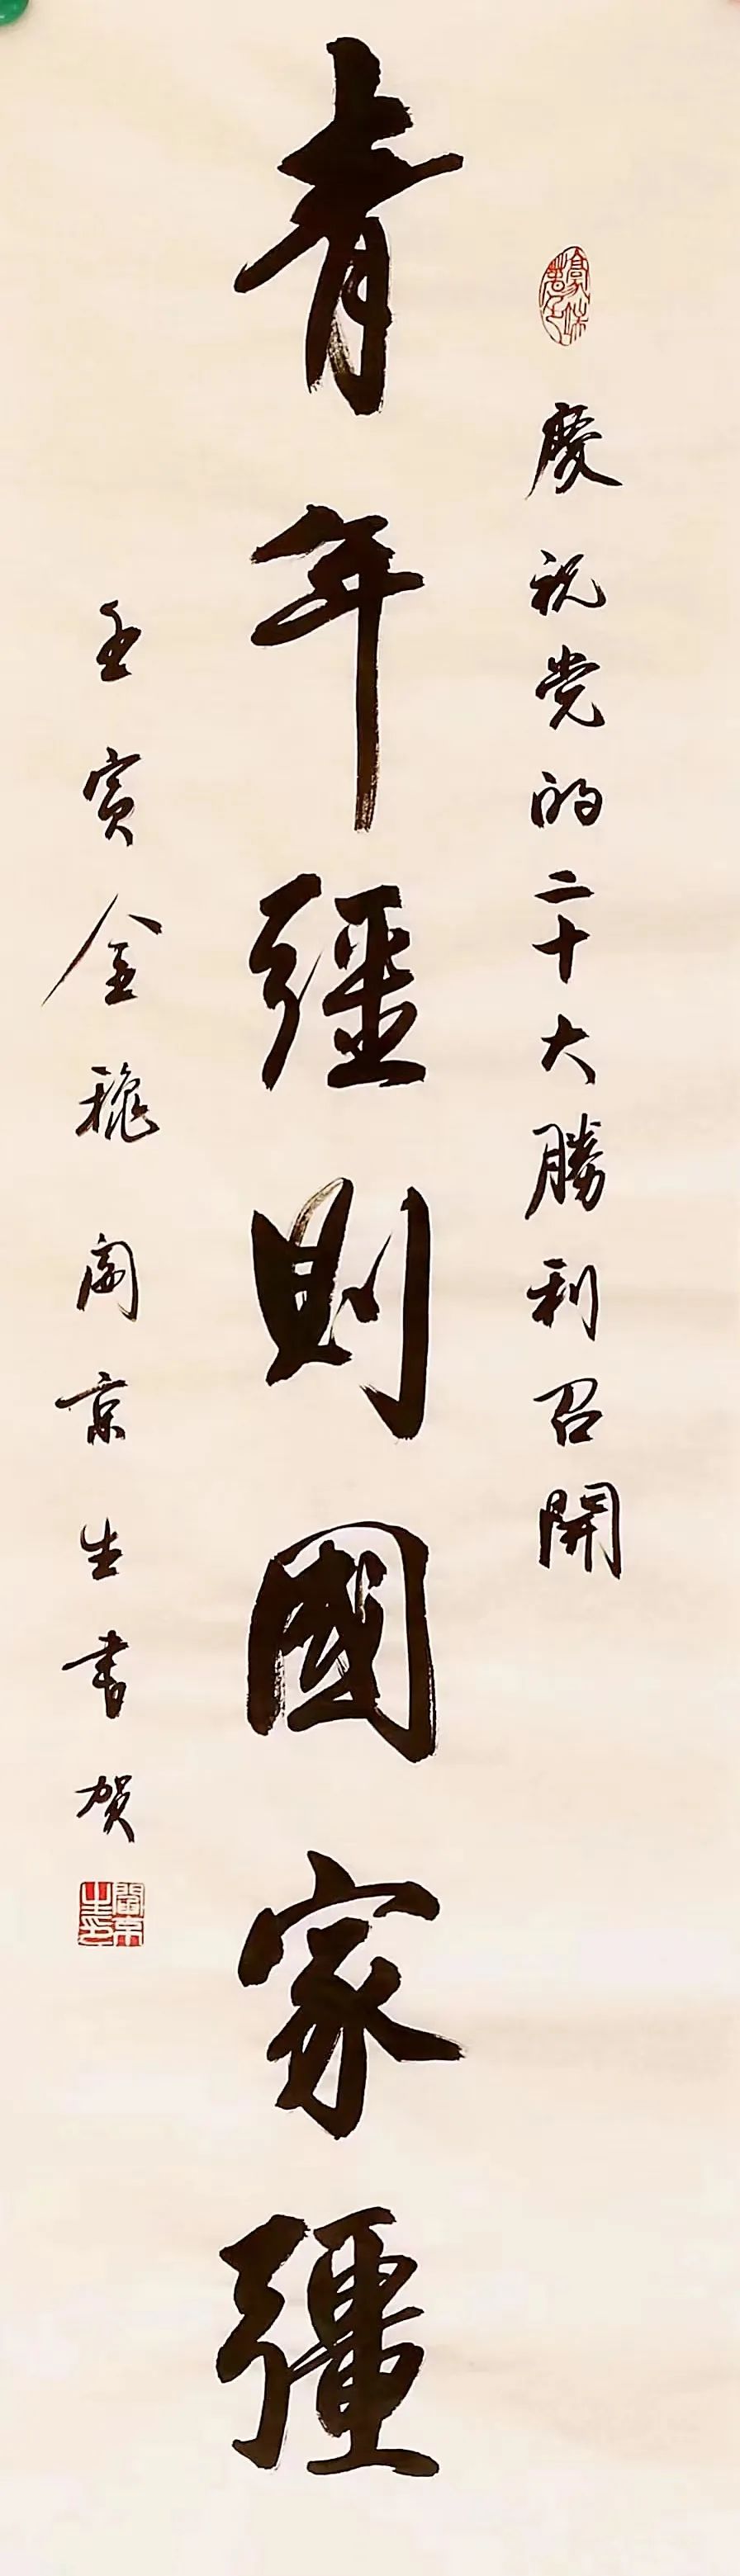 慶祝党的二十大勝利召開
青年彊則國家彊
壬寅金穐閆京生書贺
閻京生印